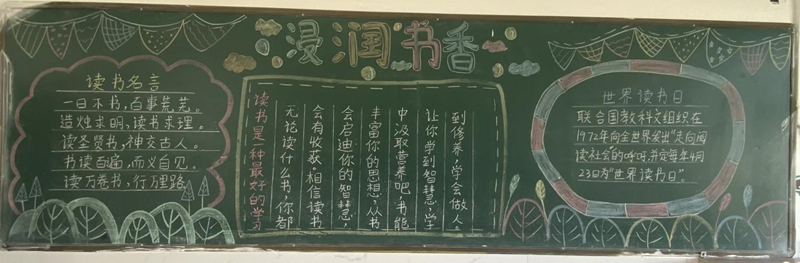 浸润书香
读书名言
一日不书，百事荒芜。
造烛求明，读书求理。
读圣贤书，神交古人。
书读百遍，而义自见。
读万卷书，行万里路。
读书是一种最好的学习
无论读什么书，你都
会有收获，相信读书
会启迪你的智慧，
丰富你的思想，从书
中汲取营养吧，书能
让你学到智慧，学
到修养，学会做人。
世界读书日
联合国教科文组织在
1972年向全世界发出“走向阅
读社会”的呼吁，并定每年4月
23日为“世界读书日”。